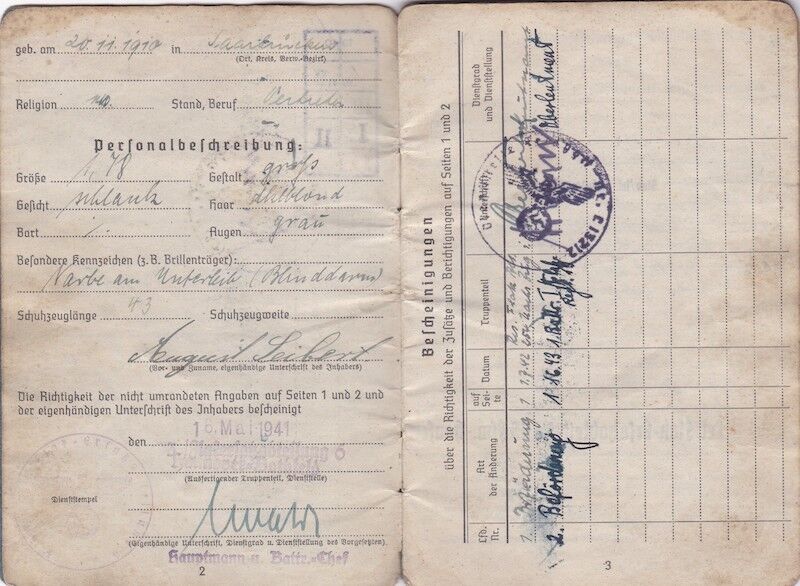 geb. am 20.11.1910 in Saarbrücken
(Ort, Kreis, Verw.-Bezirk)
Religion Stand, Beruf Vertreter
Personalbeschreibung:
Größe 1,78 Gestalt groß
Gesicht schlank Haar dklblond
Bart ./. Augen grau
Besondere Kennzeichen (z. B. Brillenträger):
Narbe am Unterleib (Blinddarm)
Schuhzeuglänge 43 Schuhzeugweite
August Seibert
(Vor- und Zuname, eigenhändige Unterschrift des Inhabers)
Die Richtigkeit der nicht umrandeten Angaben auf Seiten 1 und 2 und
der eigenhändigen Unterschrift des Inhabers bescheinigt
den 16. Mai 1941
(Ausfertigender Truppenteil, Dienststelle)
Dienststempel
(Eigenhändige Unterschrift, Dienstgrad u. Dienststellung des Vorgesetzten)
Hauptmann u. Battr.-Chef
2
Bescheinigungen
über die Richtigkeit der Zusätze und Berichtigungen auf Seiten 1 und 2
Lfd. Nr. Art der Änderung auf Seite Datum Truppenteil Unterschrift Dienstgrad und Dienststellung
1. Beförderung 1 1.7.42
2. Beförderung 1 1.6.43 Oberleutnant
3